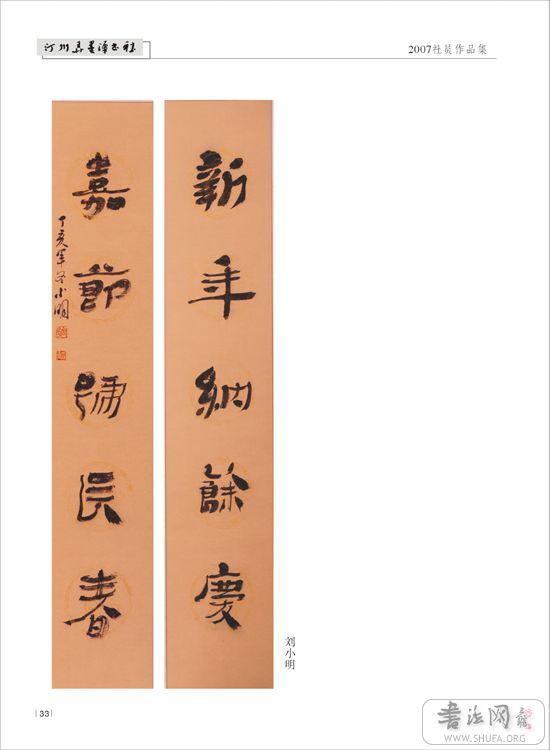 2007社员作品集
新年納餘慶
嘉節號長春
丁亥年冬小明
刘小明
33
书法网
WWW.SHUFA.ORG